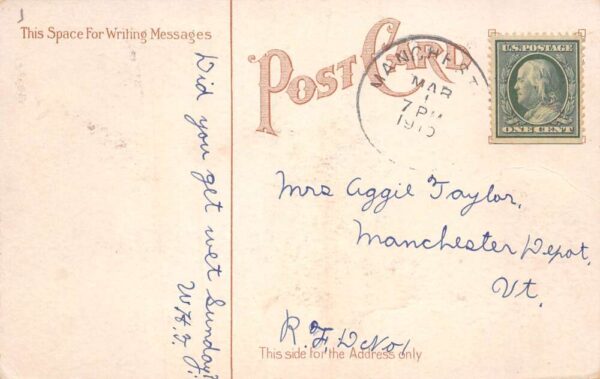 This Space For Writing Messages
POST CARD
MAR
1
7 PM
1910
U.S. POSTAGE
ONE CENT
Did you get wet Sunday?
Mrs Aggie Taylor,
Manchester Depot,
Vt.
R.F.D No 1
This side for the Address only